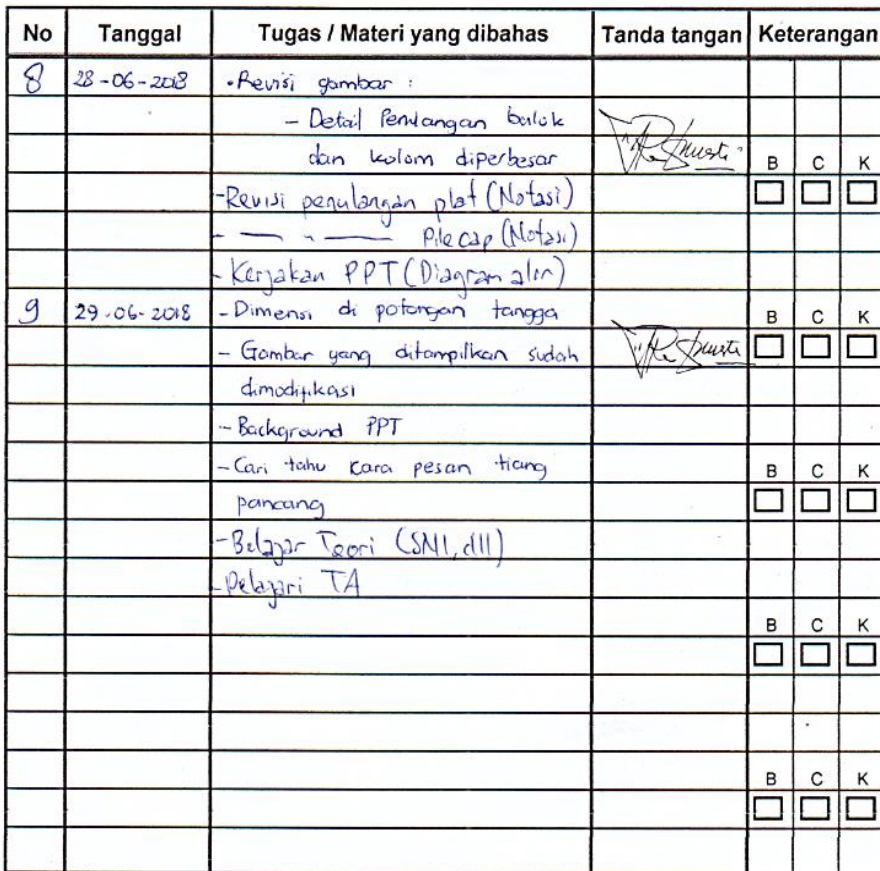 No Tanggal Tugas / Materi yang dibahas Tanda tangan Keterangan
8 28-06-2018 • Revisi gambar :
- Detail Penulangan balok
dan kolom diperbesar
B C K
- Revisi penulangan plat (Notasi)
- — " — Pile cap (Notasi)
- Kerjakan PPT (Diagram alir)
9 29-06-2018 - Dimensi di potongan tangga
B C K
- Gambar yang ditampilkan sudah
dimodifikasi
- Background PPT
- Cari tahu cara pesan tiang
B C K
pancang
- Belajar Teori (SNI, dll)
- Pelajari TA
B C K
B C K